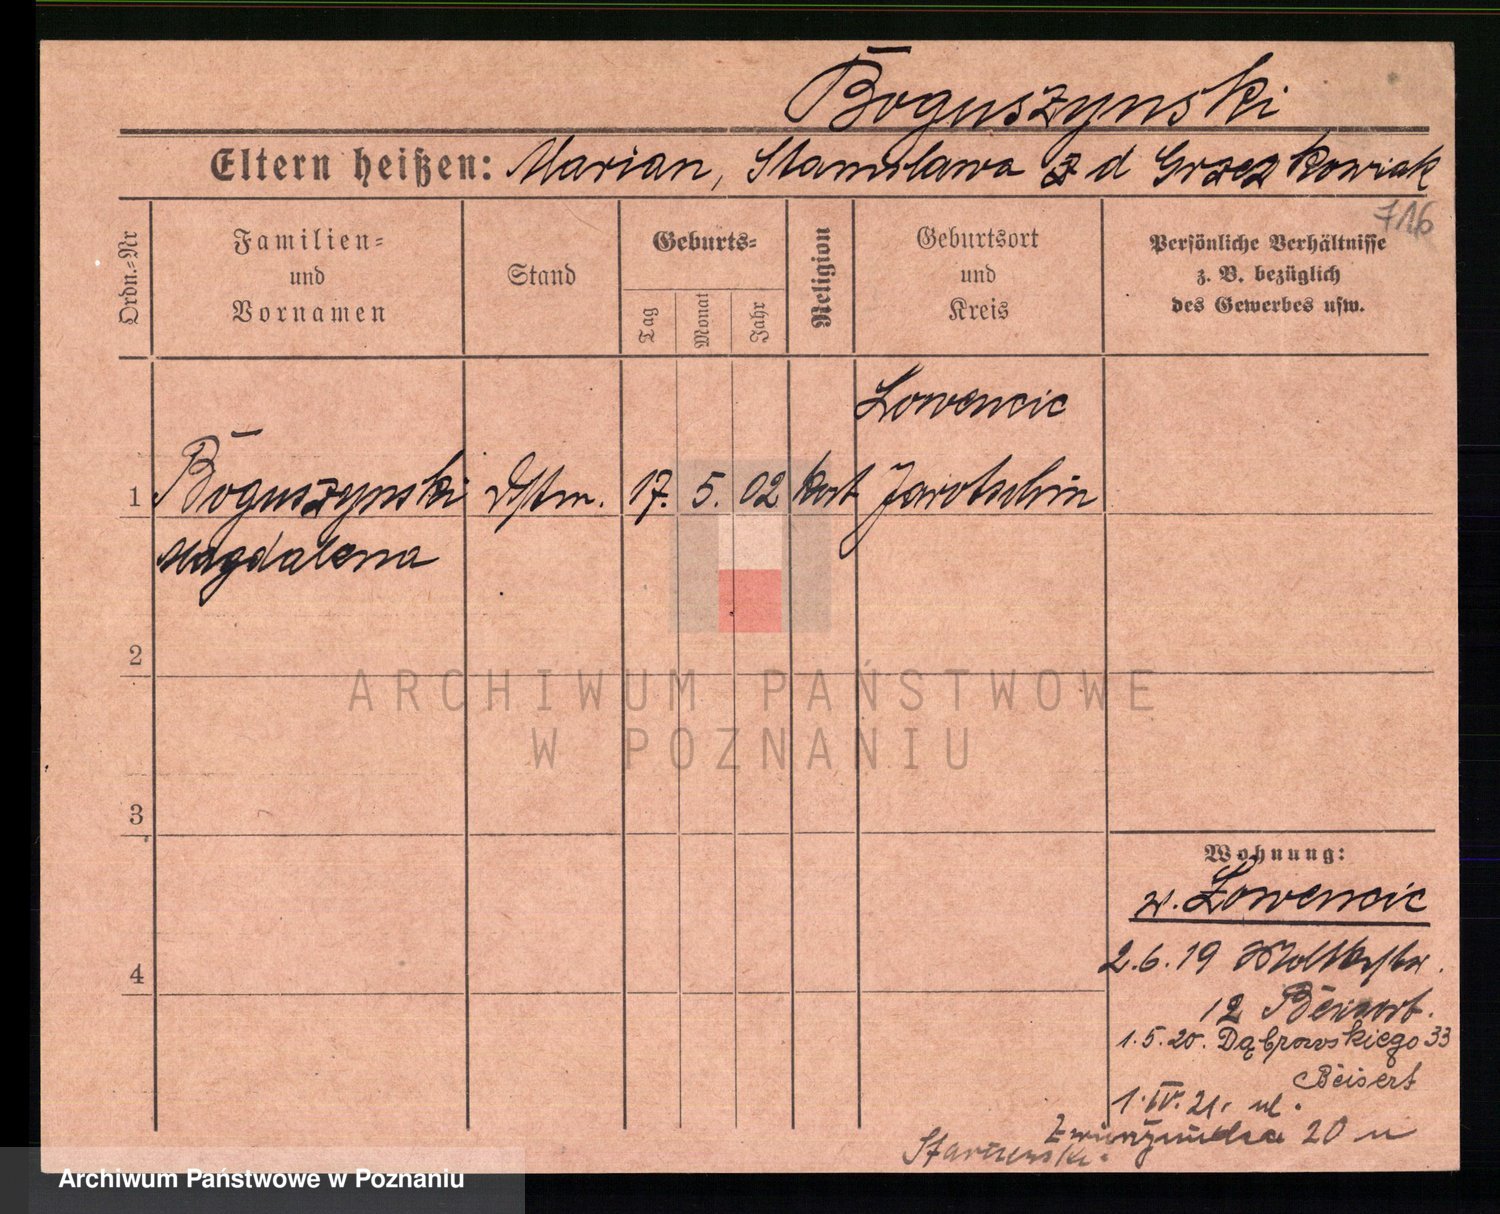 Boguszynski
Eltern heißen: Marian, Stanislawa z d Grzeszkowiak
716
Ordn.=Nr
Familien=
und
Vornamen
Stand
Geburts=
Tag
Monat
Jahr
Religion
Geburtsort
und
Kreis
Persönliche Verhältnisse
z. B. bezüglich
des Gewerbes usw.
Lowencic
1 Boguszynski Dstm. 17. 5. 02 kat Jarotschin
Magdalena
2
ARCHIWUM PAŃSTWOWE
W POZNANIU
3
4
Wohnung:
w. Lowencic
2.6.19 Moltkestr.
12
1.5.20. Dąbrowskiego 33
Beisert
1.IV.21. ul.
20 u
Archiwum Państwowe w Poznaniu